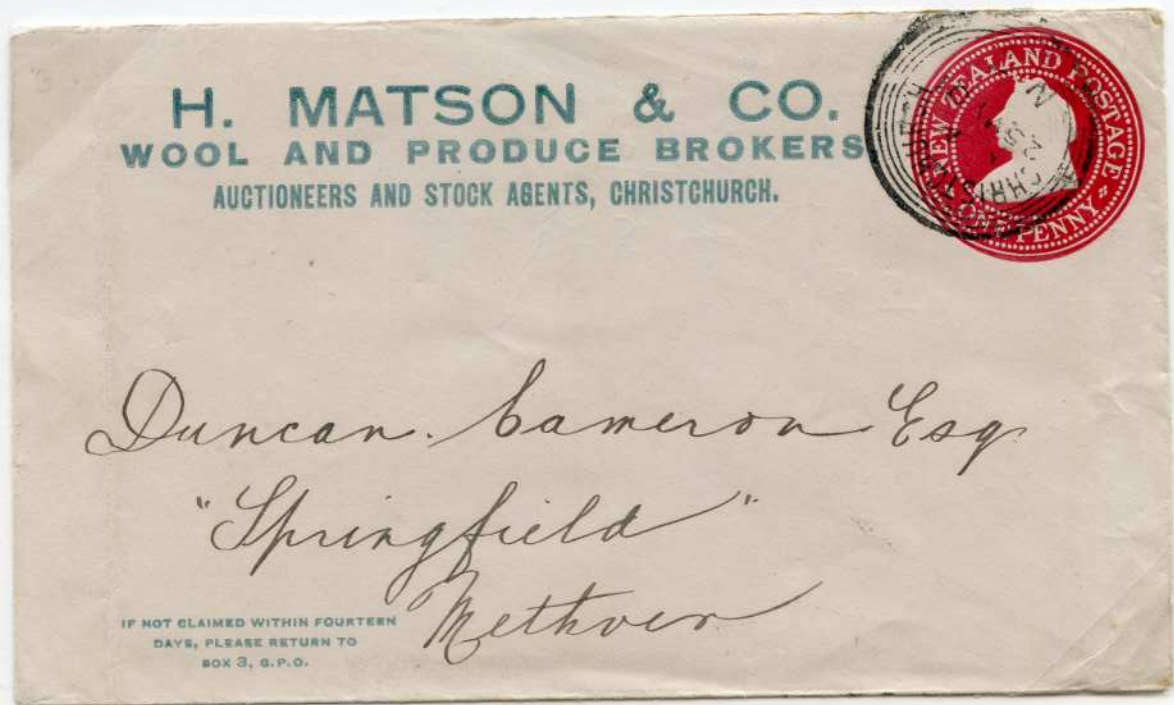 H. MATSON & CO.
WOOL AND PRODUCE BROKERS
AUCTIONEERS AND STOCK AGENTS, CHRISTCHURCH.
NEW ZEALAND POSTAGE
ONE PENNY
CHRISTCHURCH
Duncan. Cameron Esq
"Springfield"
Methven
IF NOT CLAIMED WITHIN FOURTEEN
DAYS, PLEASE RETURN TO
BOX 3, G.P.O.